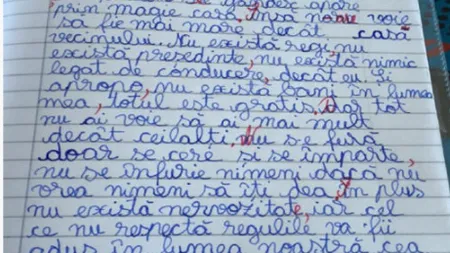 se găsesc apare
prin magie casă, însă nu au voie
să fie mai mare decât casa
vecinului. Nu există regi, nu
există președinte, nu există nimic
legat de conducere, decât eu. Și
apropo, nu există bani în lumea
mea, totul este gratis. Dar tot
nu ai voie să ai mai mult
decât ceilalți. Nu se fură
doar se cere și se imparte,
nu se infurie nimeni dacă nu
vrea nimeni să îți dea, în plus
nu există nervozitate, iar cel
ce nu respectă regulile va fi
adus în lumea noastră cea